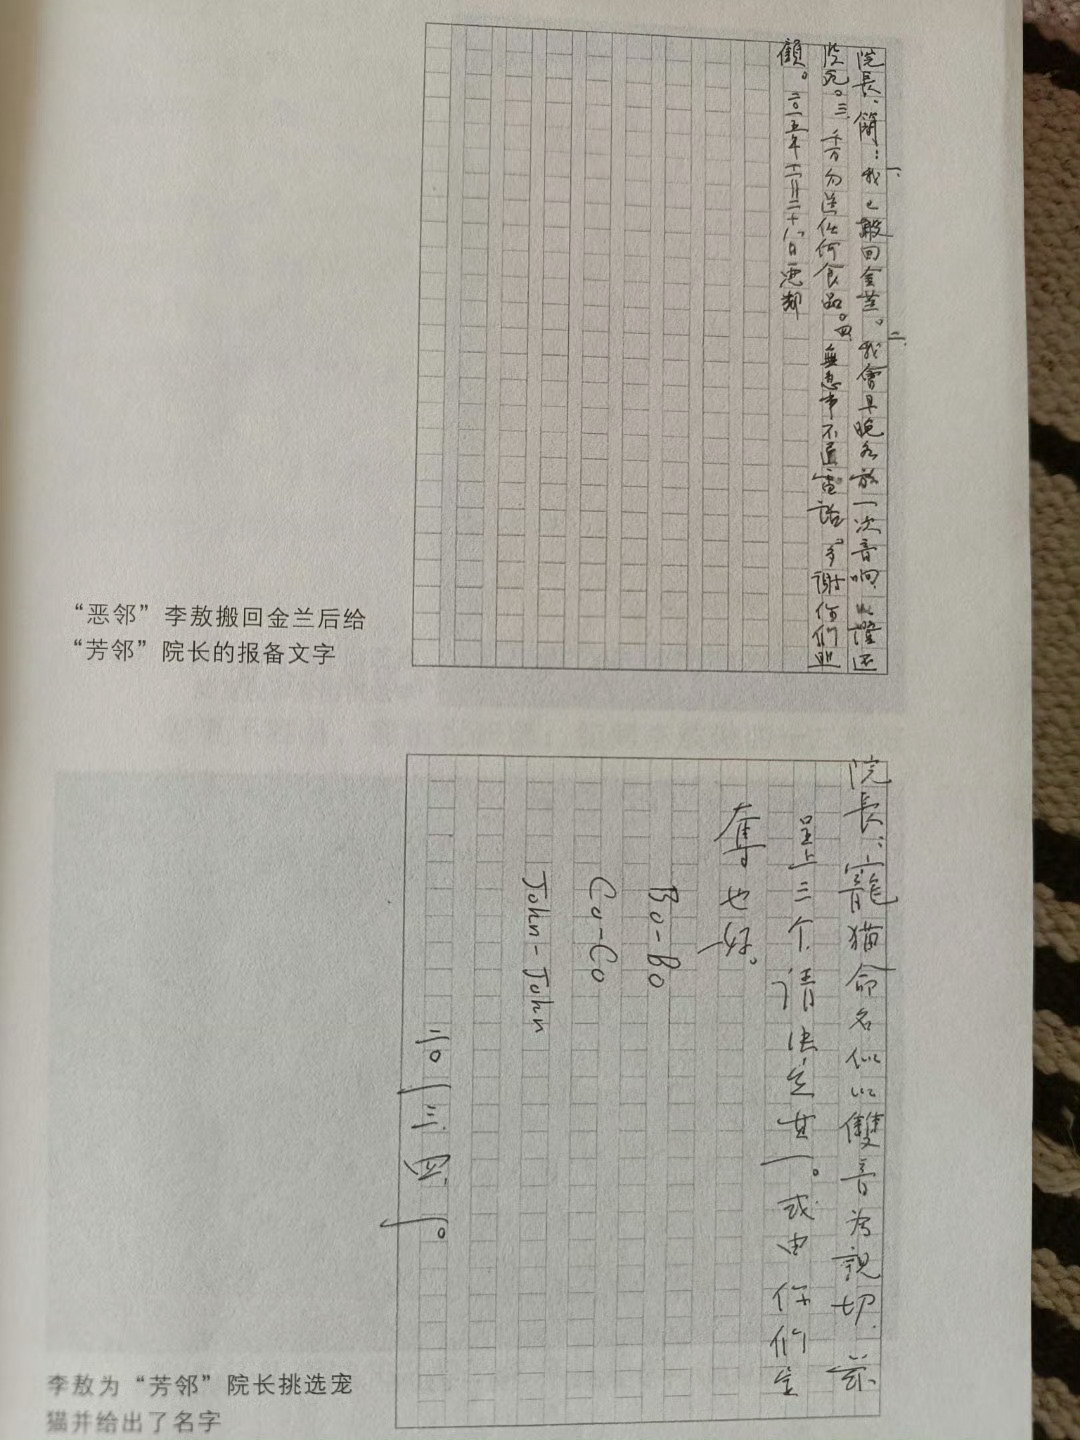 院長、簡：一、我已搬回金蘭。二、我會早晚各放一次音响，以證還
沒死。三、千万勿送任何食品。四、無急事不通電話。多謝你們照
顧。二〇一五年十二月二十八日 惡鄰
“恶邻”李敖搬回金兰后给
“芳邻”院长的报备文字
院長：寵猫命名似以雙音為親切，兹
呈上三个，请決定其一。或由你們定
奪也好。
Bo-Bo
Co-Co
John-John
二〇一三、四、一。
李敖为“芳邻”院长挑选宠
猫并给出了名字